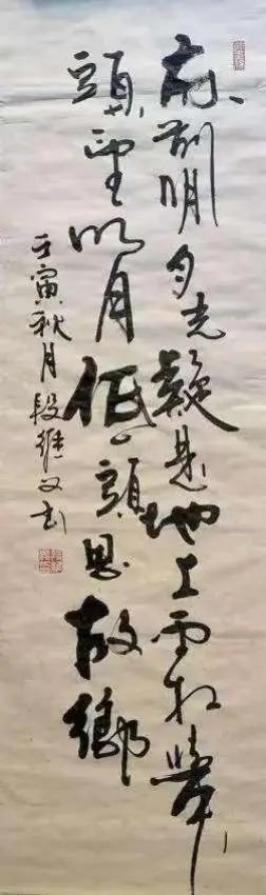 床前明月光疑是地上霜舉
頭望明月低頭思故鄉
壬寅秋月段